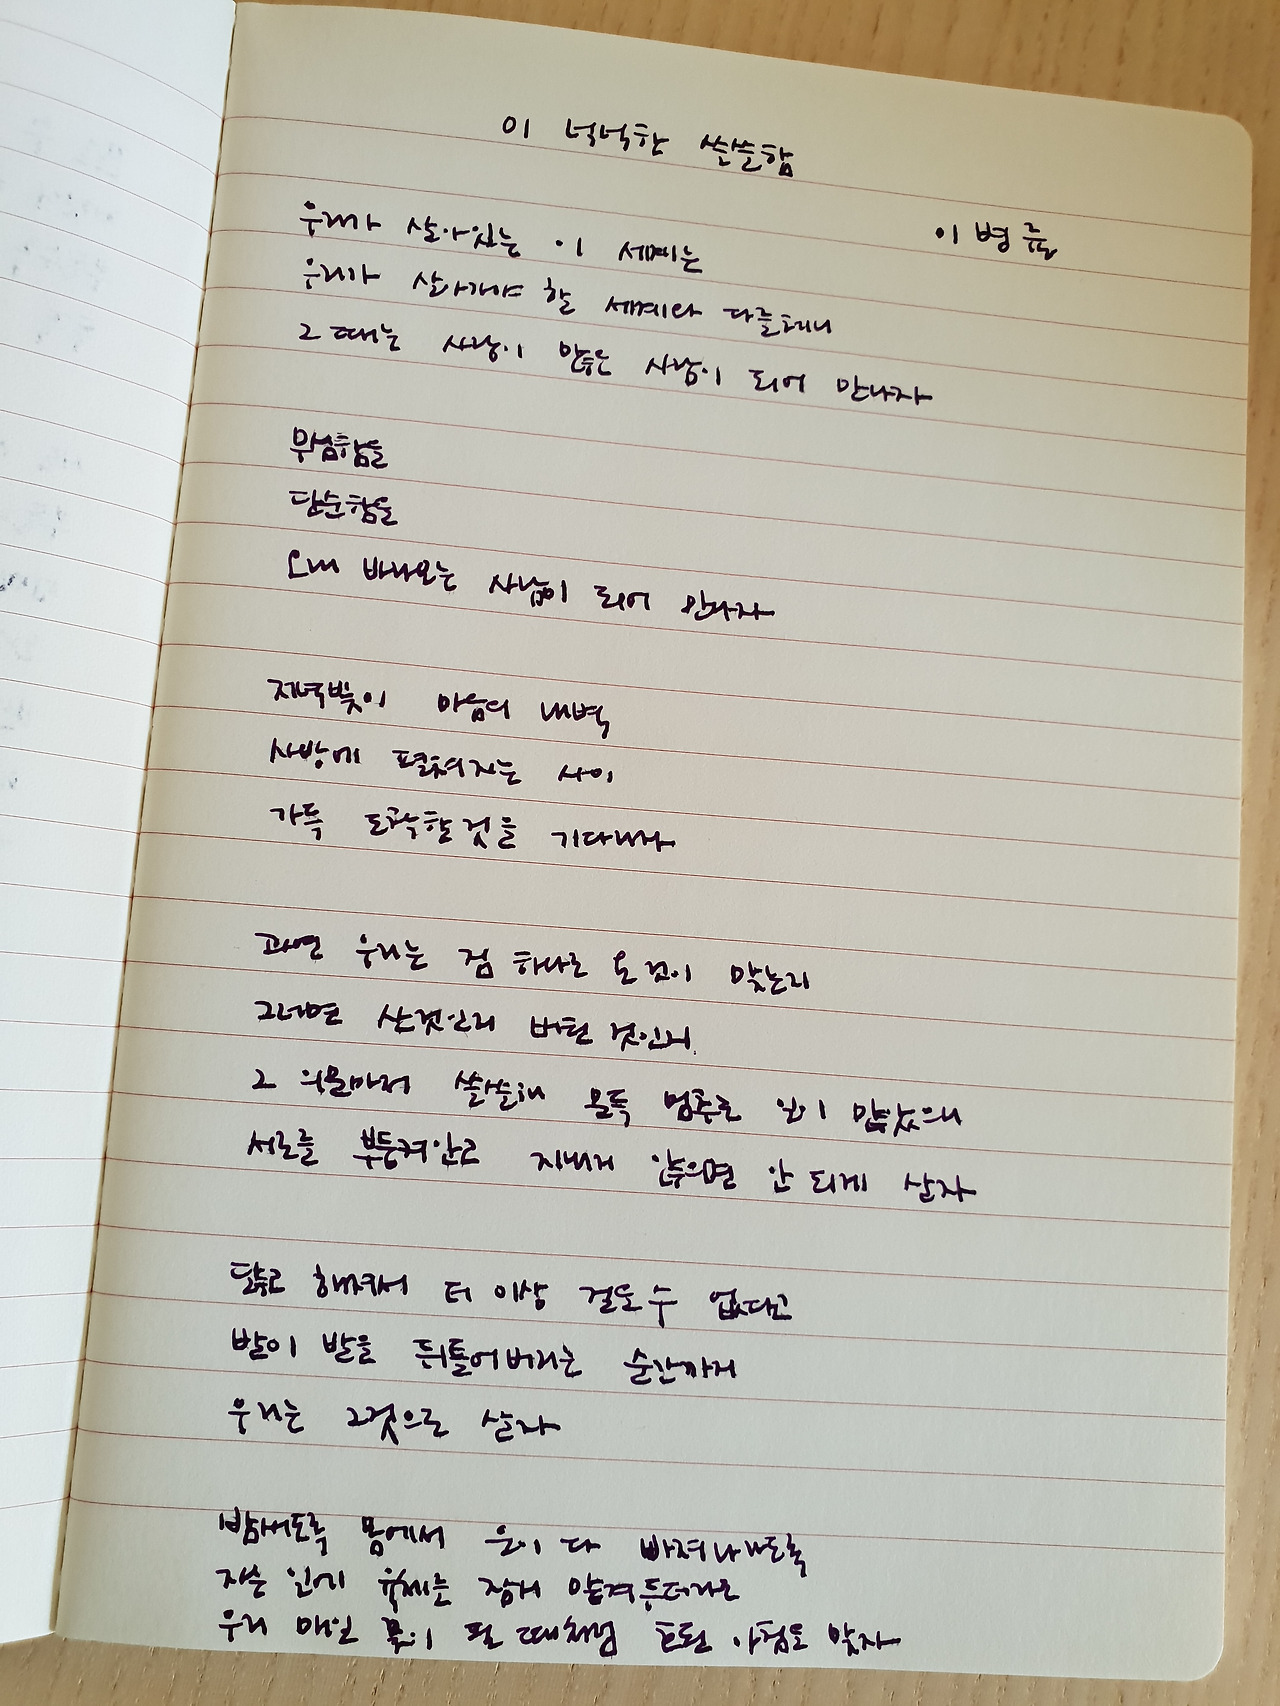 이 넉넉한 쓸쓸함
이병률
우리가 살아있는 이 세계는
우리가 살아가야 할 세계와 다를테니
그때는 사랑이 많은 사람이 되어 만나자
무심함을
단순함을
오래 바라보는 사람이 되어 만나자
저녁빛이 마음의 내벽
사방에 펼쳐지는 사이
가득 도착할것을 기다리자
과연 우리는 점 하나로 온 것이 맞는지
그러면 산것인지 버틴 것인지
그 의문마저 쓸쓸해 문득 멈추는 일이 많았으니
서로를 부둥켜안고 지내지 않으면 안 되게 살자
닳고 해져서 더 이상 걸을 수 없다고
발이 발을 뒤틀어버리는 순간까지
우리는 그것으로 살자
밤새도록 몸에서 운이 다 빠져나가도록
자는 일에 육체를 잠시 맡겨두더라도
우리 매일 꽃이 필 때처럼 호된 아침을 맞자